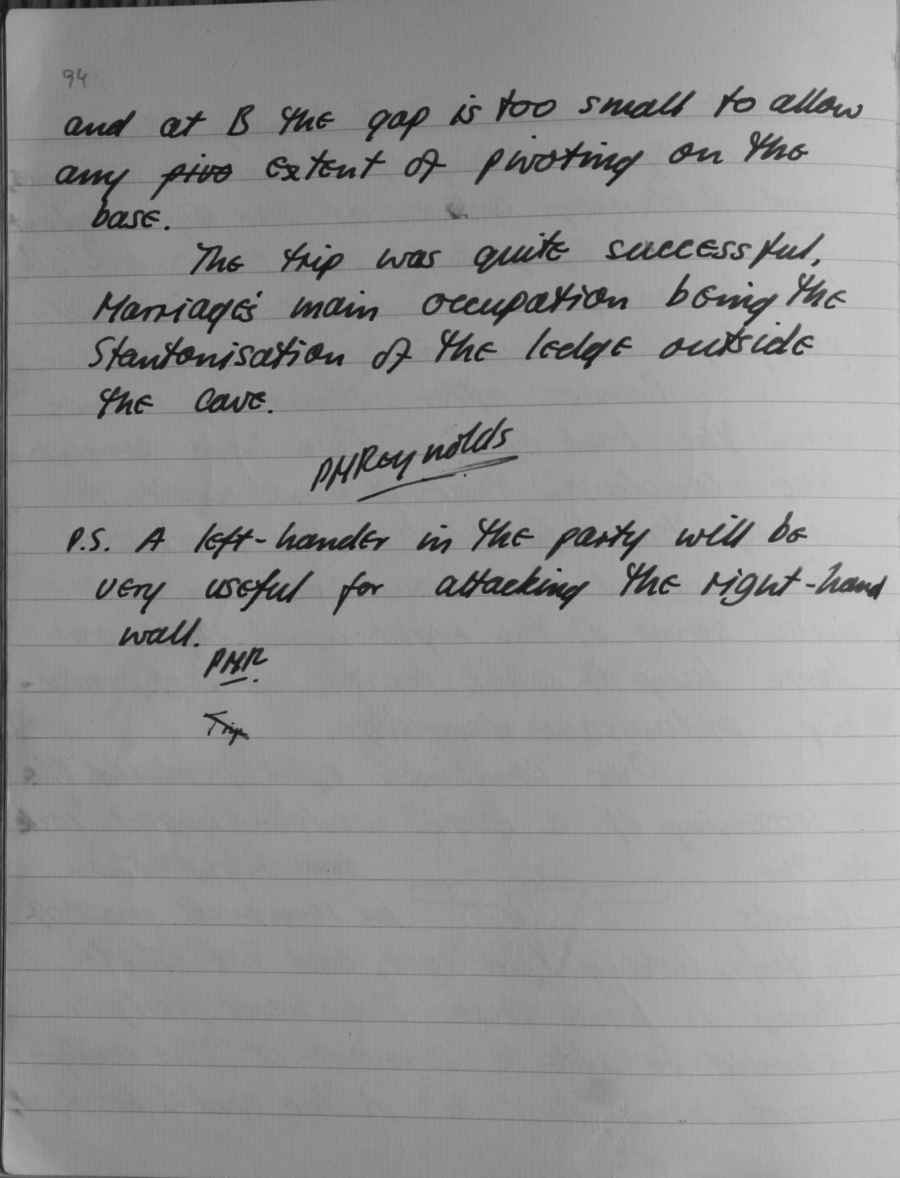 94
and at B the gap is too small to allow
any pivo extent of pivoting on the
base.
The trip was quite successful,
Marriage's main occupation being the
Stantonisation of the ledge outside
the cave.
PMReynolds
P.S. A left-hander in the party will be
very useful for attacking the right-hand
wall.
PMR.
Trip